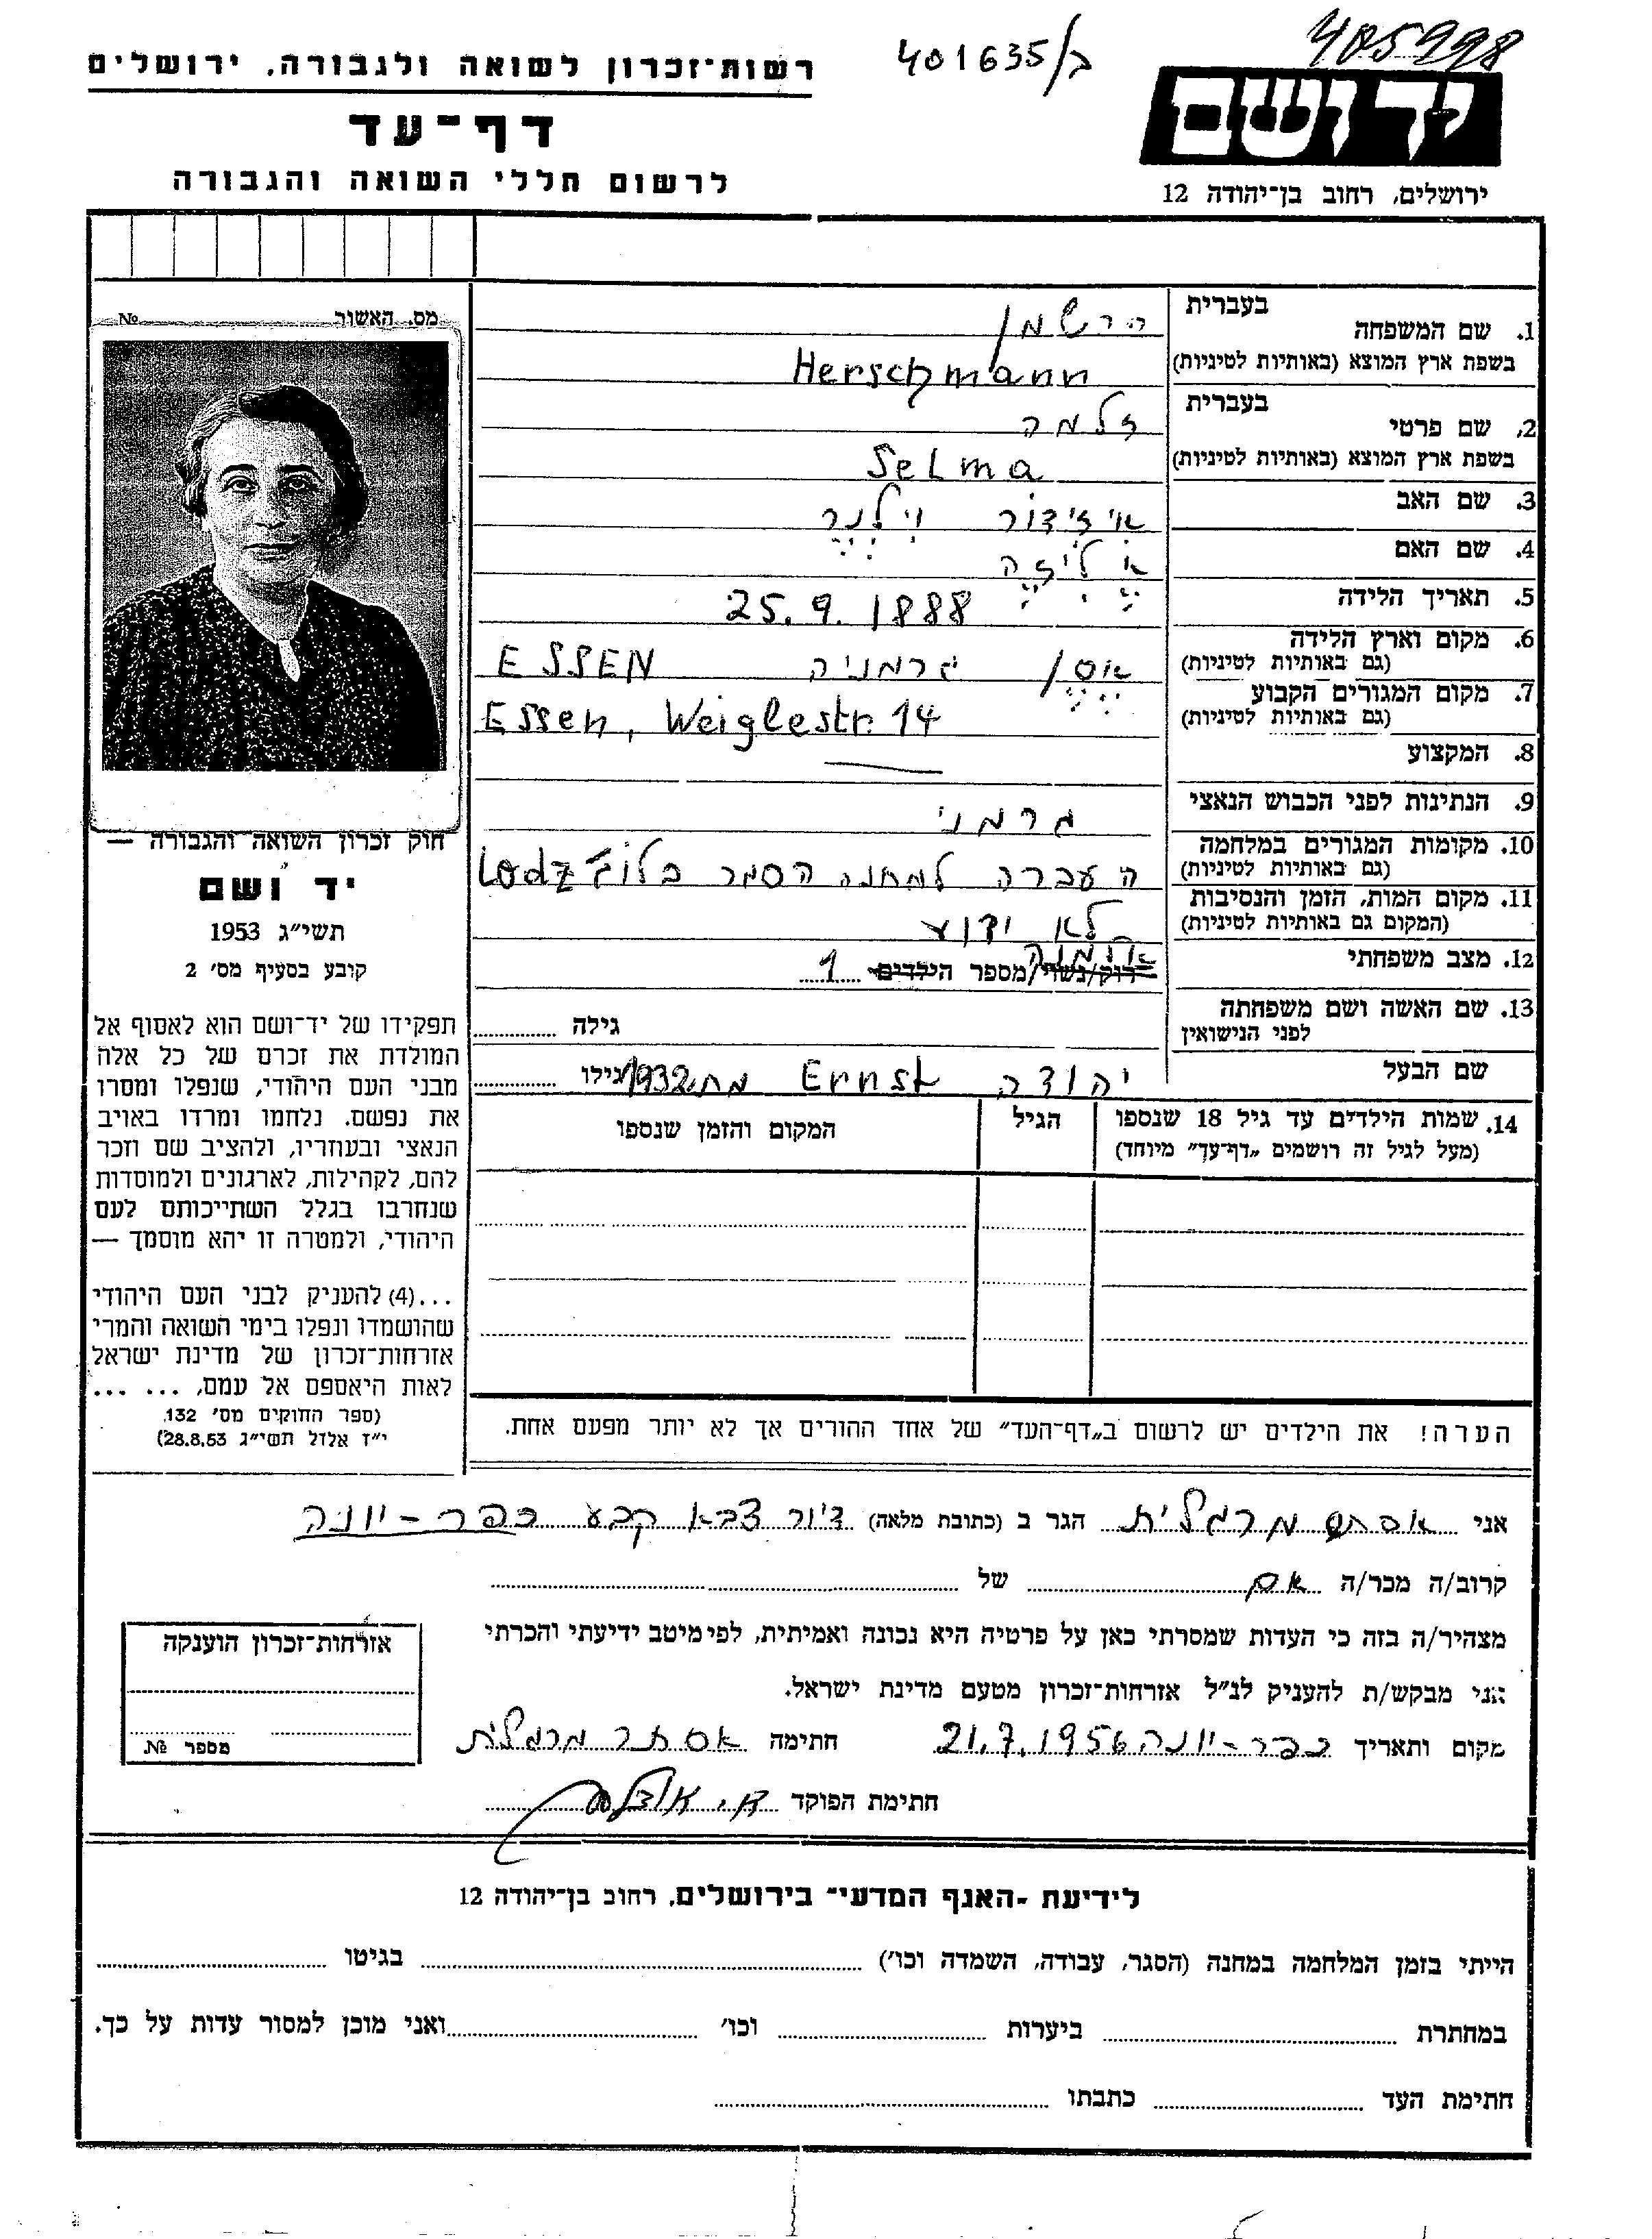 405998
401635/ב
רשות־זכרון לשואה ולגבורה, ירושלים
דף־עד
לרשום חללי השואה והגבורה
יד ושם
ירושלים, רחוב בן־יהודה 12
מס. האשור №
חוק זכרון השואה והגבורה —
יד ושם
תשי״ג 1953
קובע בסעיף מס׳ 2
תפקידו של יד־ושם הוא לאסוף אל
המולדת את זכרם של כל אלה
מבני העם היהודי, שנפלו ומסרו
את נפשם, נלחמו ומרדו באויב
הנאצי ובעוזריו, ולהציב שם וזכר
להם, לקהילות, לארגונים ולמוסדות
שנחרבו בגלל השתייכותם לעם
היהודי, ולמטרה זו יהא מוסמך —
...(4) להעניק לבני העם היהודי
שהושמדו ונפלו בימי השואה והמרי
אזרחות־זכרון של מדינת ישראל
לאות היאספם אל עמם, ... ...
(ספר החוקים מס׳ 132,
י״ז אלול תשי״ג 28.8.53)
1. שם המשפחה בעברית הרשמן
בשפת ארץ המוצא (באותיות לטיניות) Herschmann
2. שם פרטי בעברית זלמה
בשפת ארץ המוצא (באותיות לטיניות) Selma
3. שם האב איזידור וילנר
4. שם האם אליזה
5. תאריך הלידה 25.9.1888
6. מקום וארץ הלידה (גם באותיות לטיניות) אסן גרמניה ESSEN
7. מקום המגורים הקבוע (גם באותיות לטיניות) Essen, Weiglestr. 14
8. המקצוע —
9. הנתינות לפני הכבוש הנאצי גרמני
10. מקומות המגורים במלחמה (גם באותיות לטיניות) העברה למחנה הסגר בלודז׳ Lodz
11. מקום המות, הזמן והנסיבות (המקום גם באותיות לטיניות) לא ידוע
12. מצב משפחתי אלמנה רוק/נשוי/מספר הילדים 1
13. שם האשה ושם משפחתה לפני הנישואין גילה
שם הבעל יהודה Ernst מת 1932 גילו
14. שמות הילדים עד גיל 18 שנספו הגיל המקום והזמן שנספו
(מעל לגיל זה רושמים „דף־עד״ מיוחד)
הערה! את הילדים יש לרשום ב„דף־העד״ של אחד ההורים אך לא יותר מפעם אחת.
אני אסתר מרגלית הגר ב (כתובת מלאה) דיור צבא קבע כפר-יונה
קרוב/ה מכר/ה אם של
מצהיר/ה בזה כי העדות שמסרתי כאן על פרטיה היא נכונה ואמיתית, לפי מיטב ידיעתי והכרתי
אני מבקש/ת להעניק לנ״ל אזרחות־זכרון מטעם מדינת ישראל.
מקום ותאריך כפר-יונה 21.7.1956 חתימה אסתר מרגלית
חתימת הפוקד
אזרחות־זכרון הוענקה
מספר №
לידיעת „האגף המדעי״ בירושלים, רחוב בן־יהודה 12
הייתי בזמן המלחמה במחנה (הסגר, עבודה, השמדה וכו׳) בגיטו
במחתרת ביערות וכו׳ ואני מוכן למסור עדות על כך.
חתימת העד כתבתו